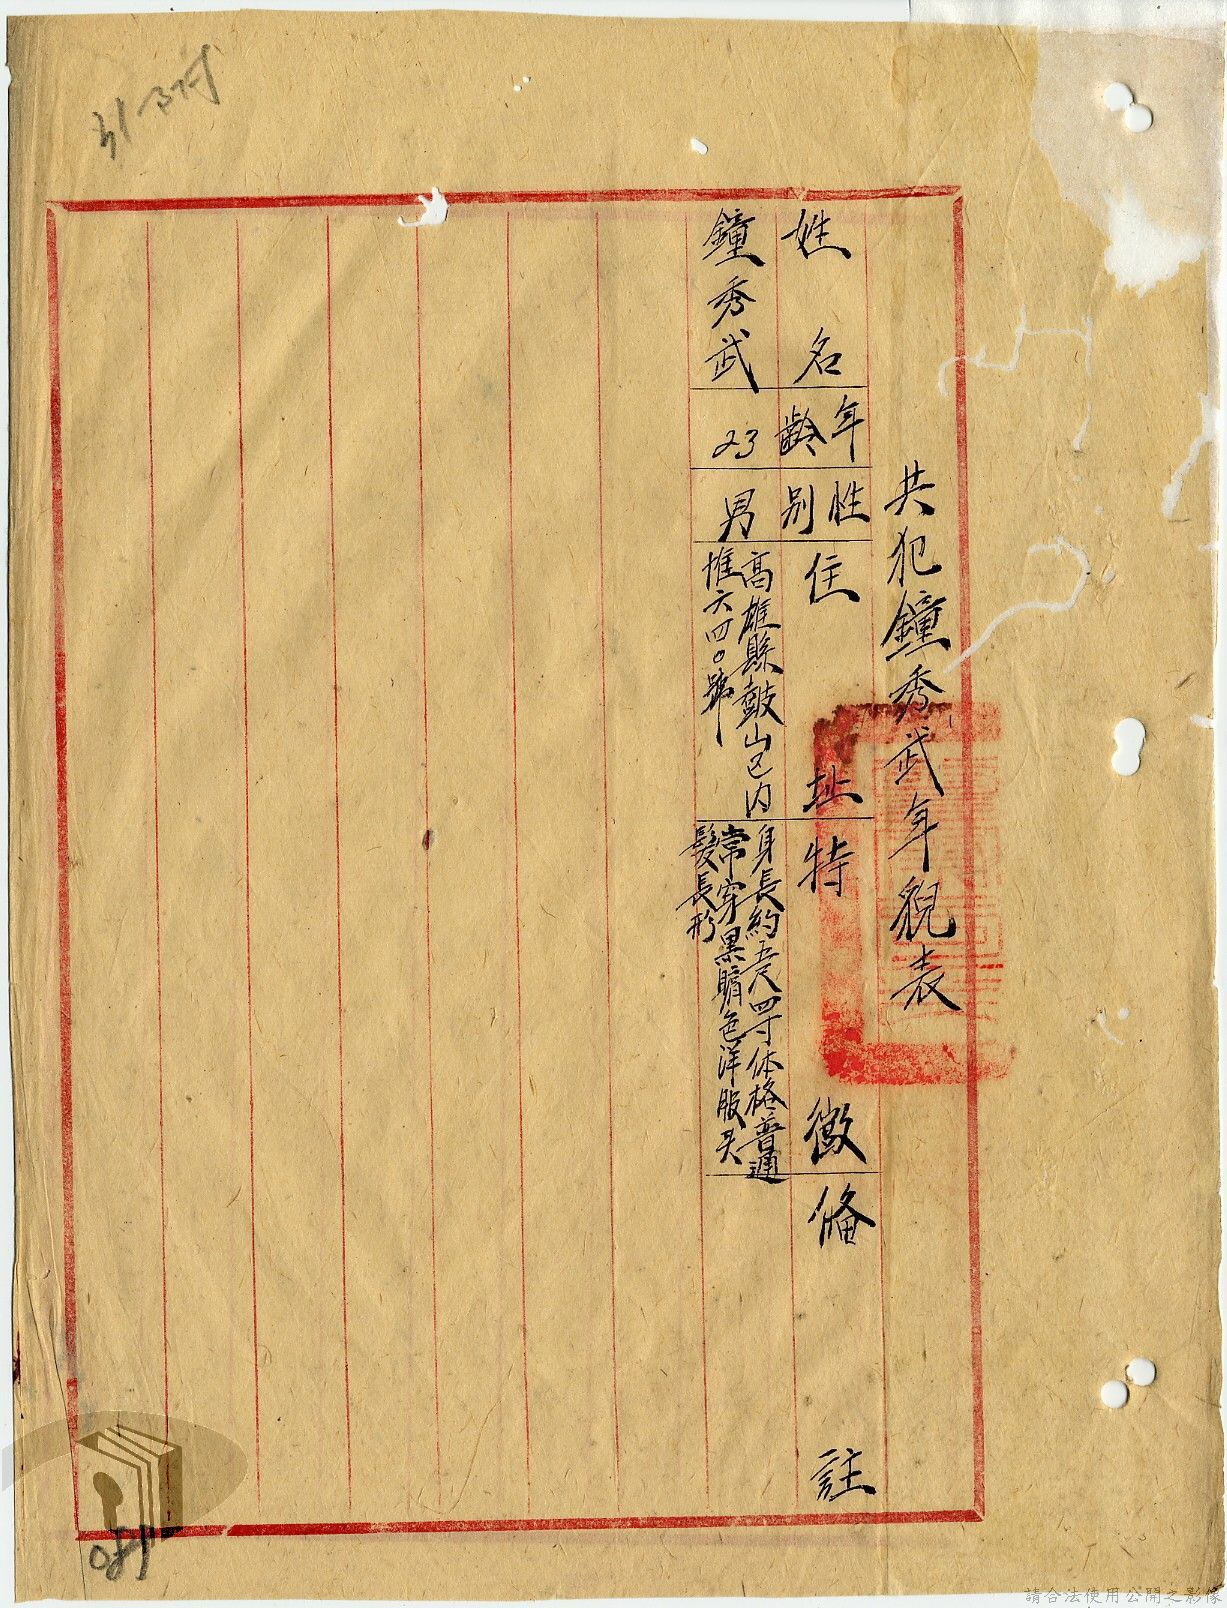 共犯鐘秀武年貌表
姓名
年齡
性別
住址
特徵
備註
鐘秀武
23
男
高雄縣鼓山区内
惟六四〇號
身長約五尺四寸体格普通
常穿黒色洋服头
髮長形
請合法使用公開之影像